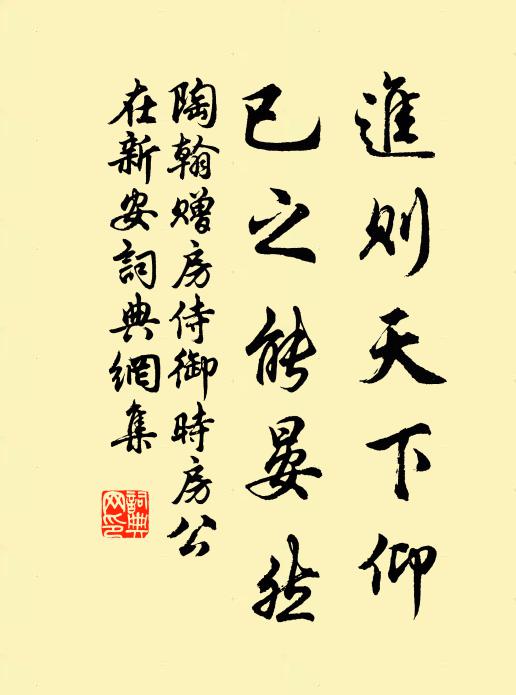 進则天下仰
已之能晏然
陶翰赠房侍御時房公
在新安詞典網集
詞典
网印